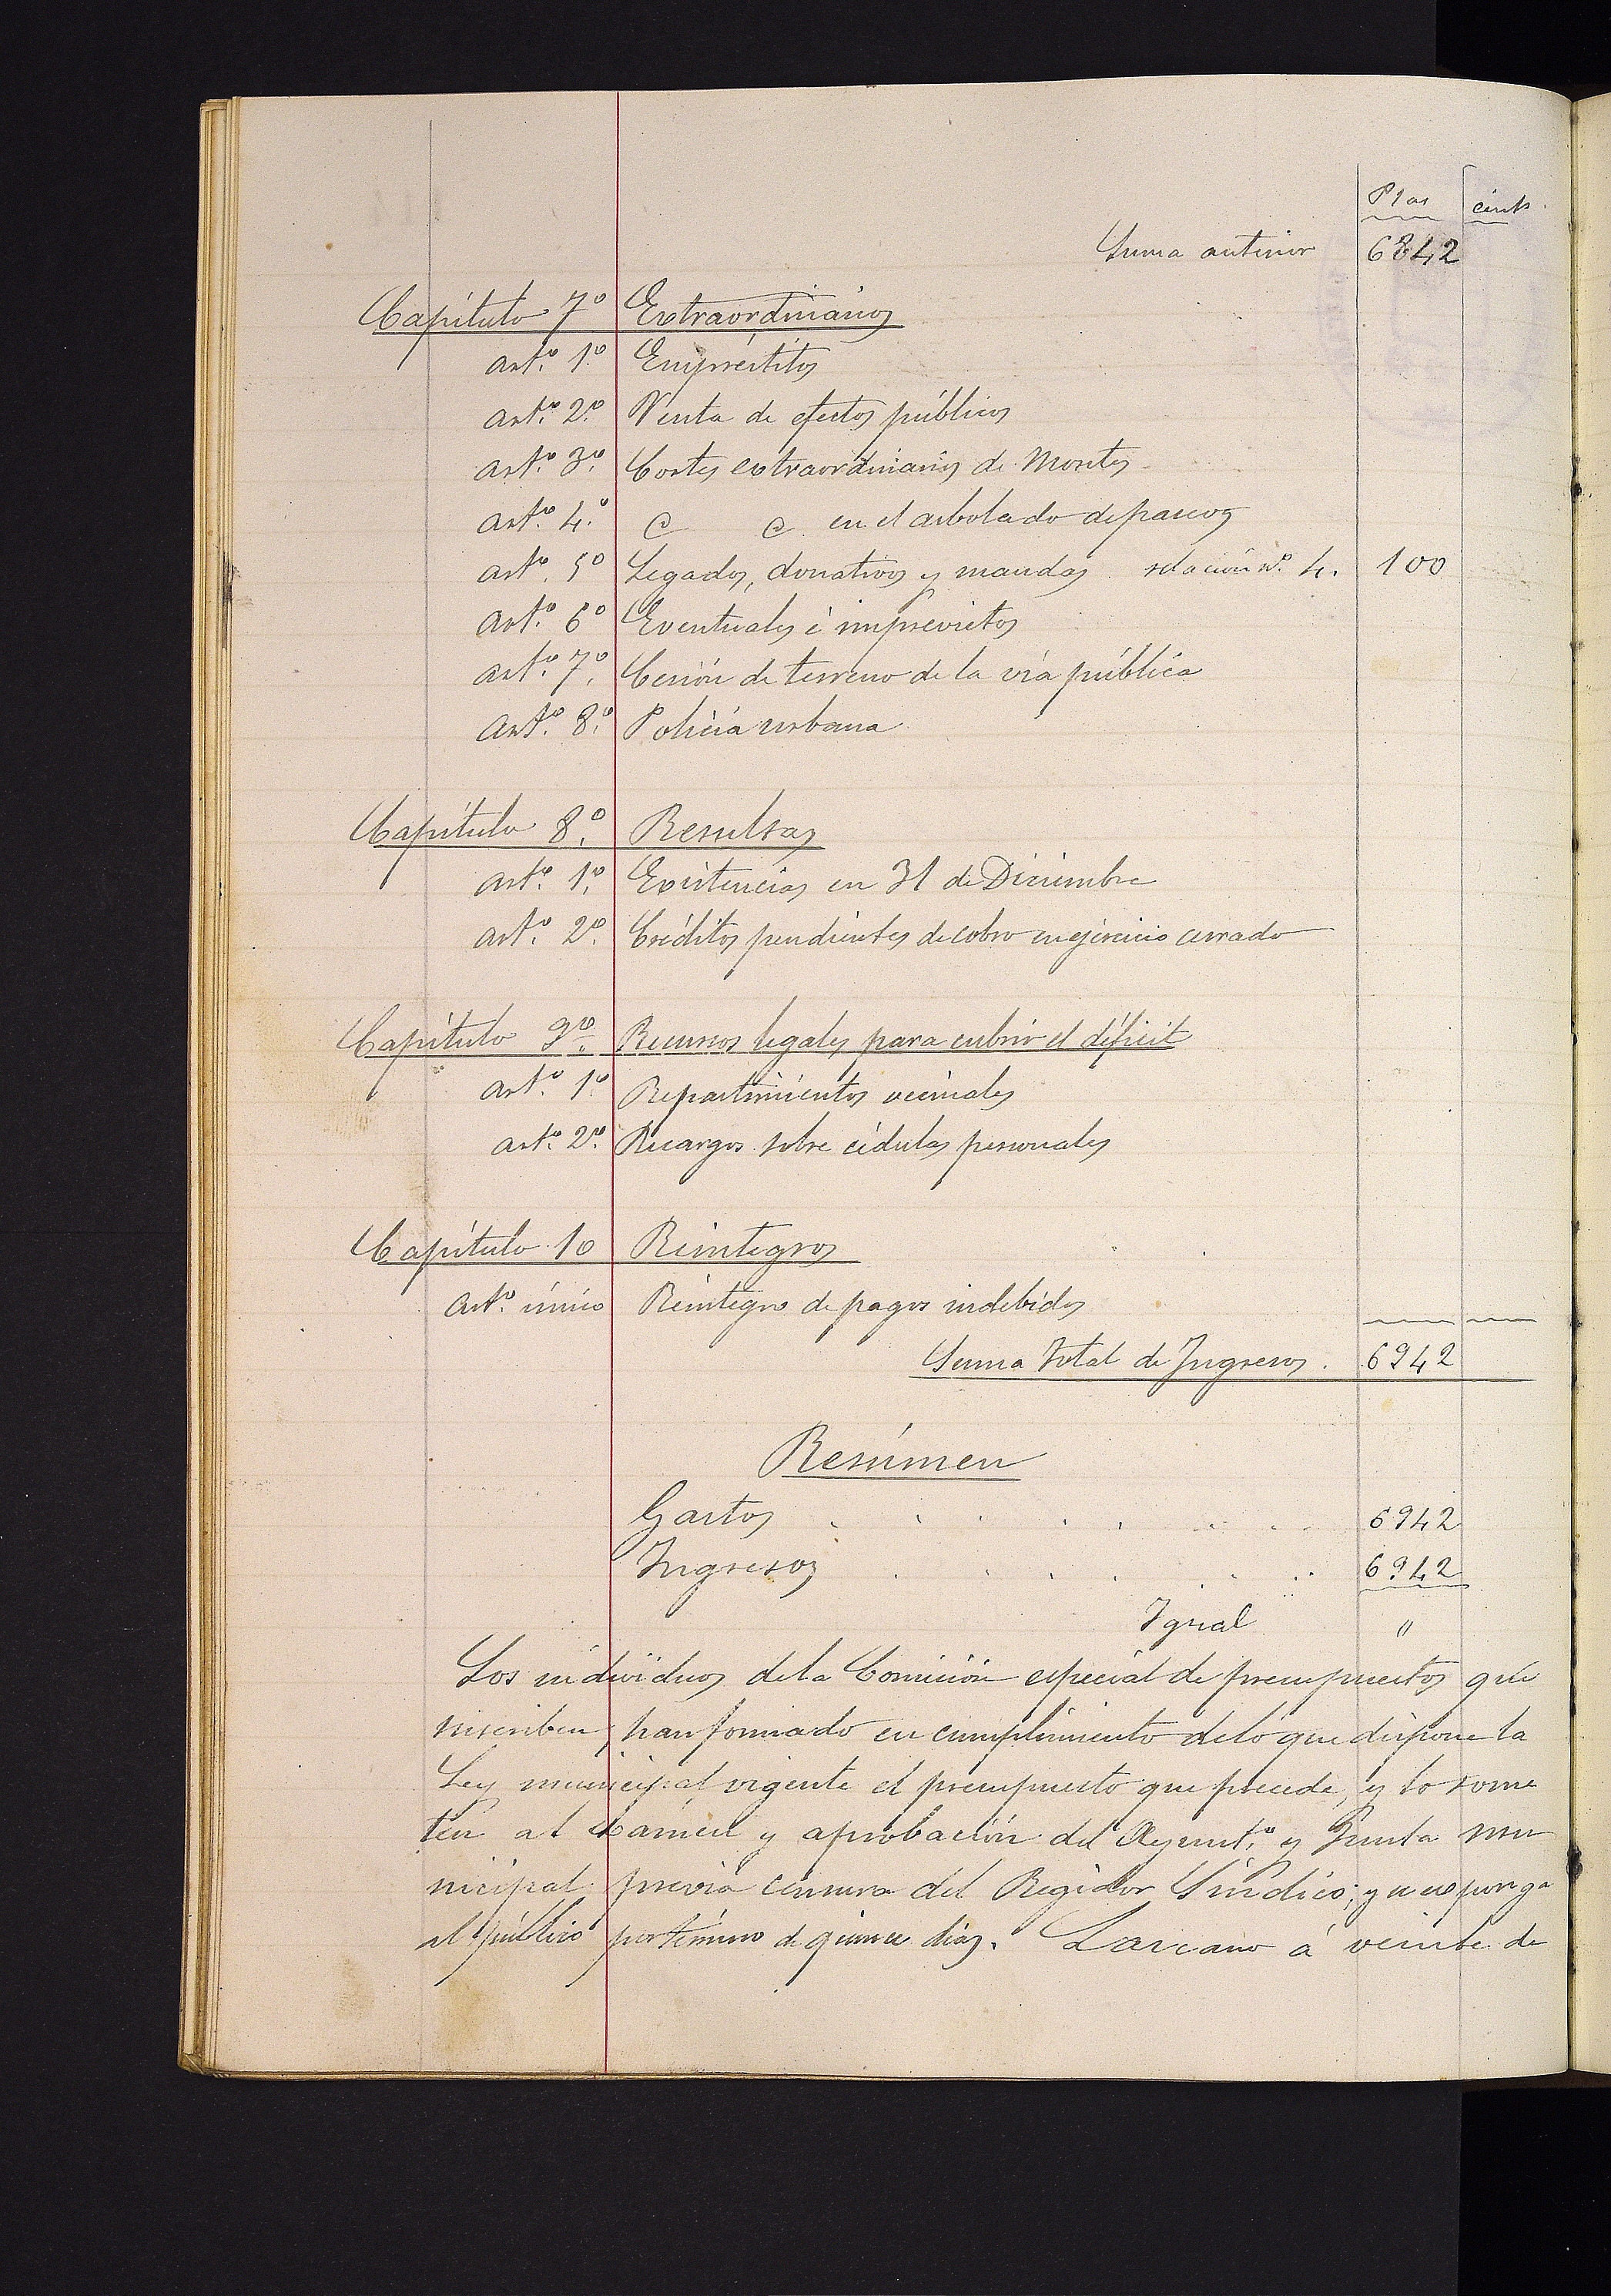 Ptas cénts.
Suma anterior 6842
Capítulo 7º Extraordinarios
artº. 1º. Empréstitos
artº. 2º. Venta de efectos públicos
artº. 3º. Cortes extraordinarios de Montes
artº. 4º. @ @ en el arbolado de paseos
artº. 5º Legados, donativos y mandas relación nº 4. 100
artº. 6º Eventuales é imprevistos
artº. 7º. Cesión de terreno de la vía pública
artº. 8º. Policía urbana
Capítulo 8º. Resultas
artº. 1º. Existencias en 31 de Diciembre
artº. 2º. Créditos pendientes de cobro en ejercicio cerrado
Capítulo 9º. Recursos legales para cubrir el déficit
artº. 1º. Repartimientos vecinales
artº. 2º. Recargos sobre cédulas personales
Capítulo 10 Reintegros
artº. único Reintegro de pagos indebidos
Suma total de Ingresos. 6942
Resúmen
Gastos 6942
Ingresos 6942
Igual "
Los individuos de la Comisión especial de presupuestos que
suscriben, han formado en cumplimiento de lo que dispone la
Ley municipal vigente el presupuesto que precede, y lo some
ten al exámen y aprobación del Ayuntº. y Junta mu
nicipal previa censura del Regidor Síndico; y se exponga
al público por término de quince días. Lazcano á veinte de